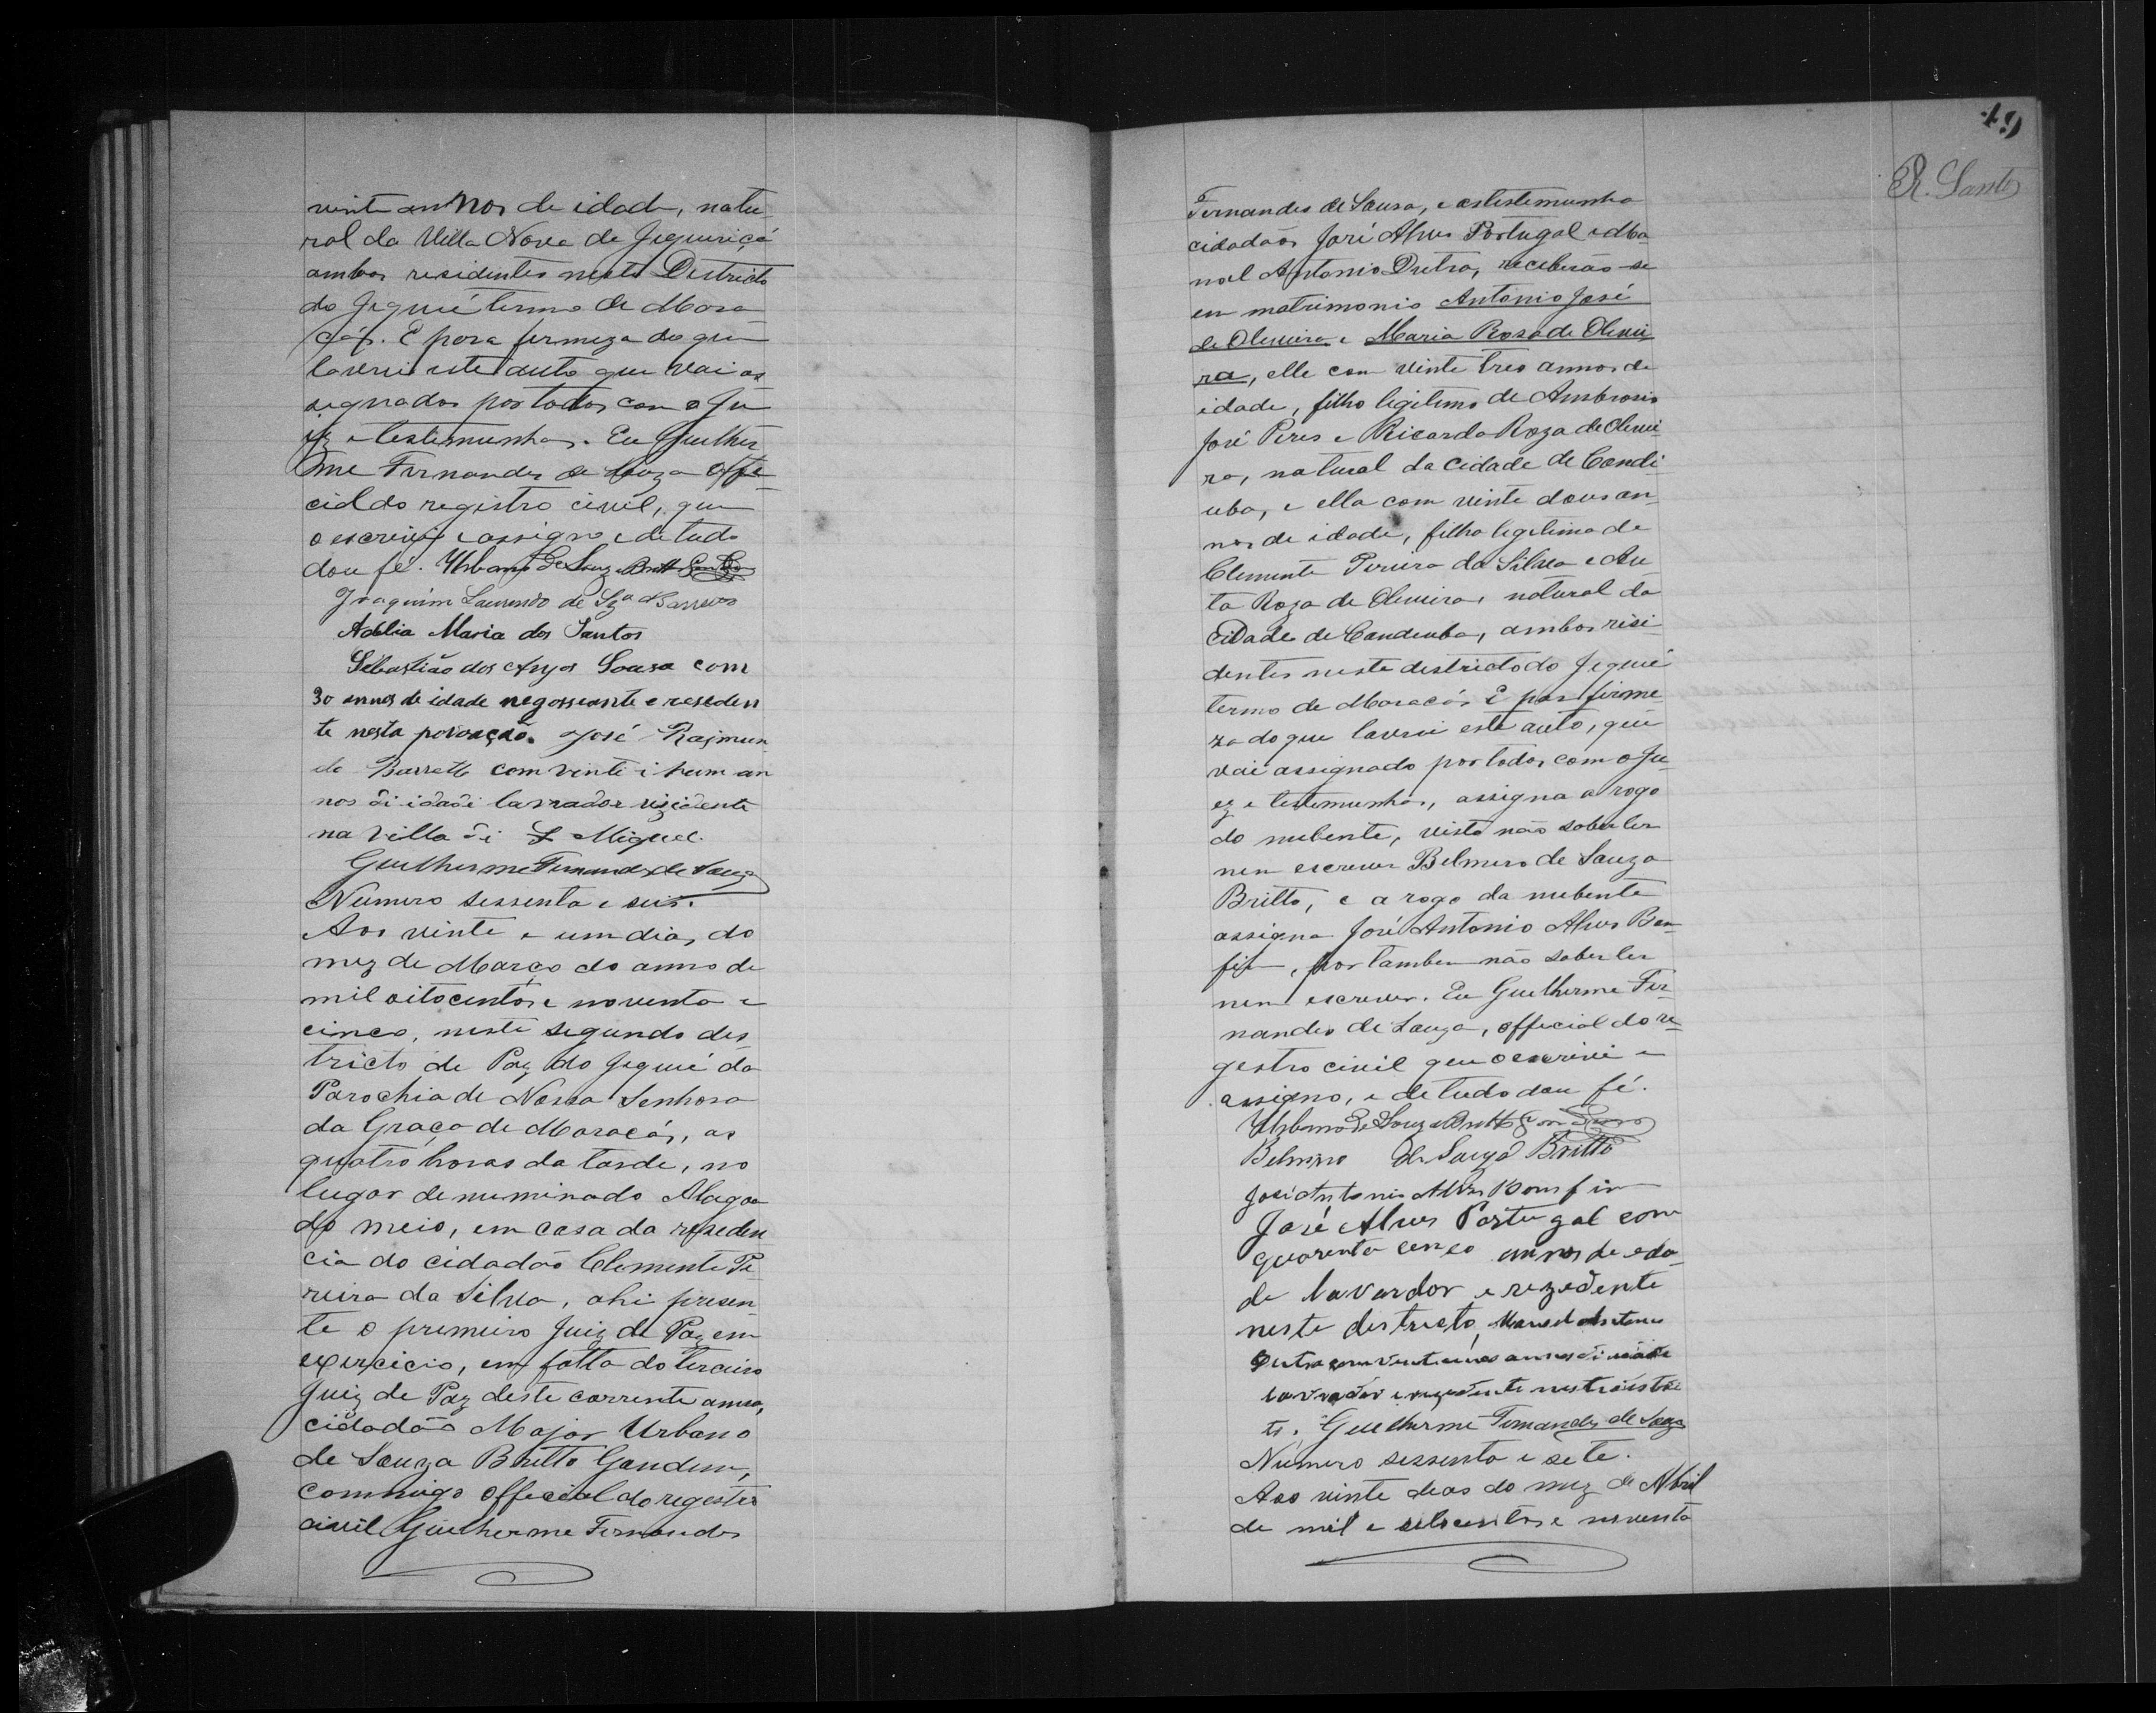 vinte annos de idade, natu-
ral da Villa Nova de Jequiriçá
ambos residentes neste Destricto
do Jequié termo de Mara-
cás. E para firmeza do que
lavrei este auto que vai as
signados por todos com o Ju
iz e testemunhas. Eu Guilher
me Fernandes de Souza offe
cial do registro civil, que
o escrevi e assigno e de tudo
dou fé. Urbano de Souza Britto Gondim
Joaquim Laurindo de Sza Barretto
Adelia Maria dos Santos
Sebastião dos Anjos Sousa com
30 annos de idade negosseante e reseden
te nesta povoação. José Raimun
do Barretto com vinte i hum an
nos di idadi lavrador rizidente
na villa di S Miguel.
Guilherme Fernandes de Souza
Numero sessenta e seis.
Aos vinte e um dias do
mez de Março do anno de
mil oitocentos e noventa e
cinco, neste segundo des
tricto de Paz do Jequié da
Parochia de Nossa Senhora
da Graça de Maracás, as
quatro horas da tarde, no
lugar denuminado Alagoa
do meio, em casa da reseden
cia do cidadão Clemente Pe
reira da Silva, ahi presen
te o premeiro Juiz de Paz em
exercicio, em falta do terceiro
Juiz de Paz deste corrente anno,
cidadão Major Urbano
de Souza Britto Gondim,
commigo Offecial do regestro
civil Guilherme Fernandes
49
R. Santos
Fernandes de Sousa, e as testemunha
cidadãos José Alves Portugal e Ma-
noel Antonio Dutra, receberão-se
em matrimonio Antonio José
de Oliveira e Maria Rosa de Olivei
ra, elle com vinte tres annos de
idade, filho legitimo de Ambrosio
José Peres e Ricarda Roza de Olivei-
ra, natural da cidade de Condi
uba, e ella com vinte dous an-
nos de idade, filha legitima de
Clemente Pereira da Silva e An
ta Roza de Oliveira, natural da
cidade de Condeuba, ambos risi-
dentes neste destricto do Jequié
termo de Maracás. E por firme
za do que lavrei este auto, que
vai assignado por todos com o Ju-
ez e testemunhas, assigna a rogo
do nubente, visto não saber ler
nem escrever Belmiro de Souza
Britto, e a rogo da nubente
assigna José Antonio Alves Bon
fim, por tambem não saber ler
nem escrever. Eu Guilherme Fer-
nandes de Souza, official do re-
gestro civil que o escrevi e
assigno, e de tudo dou fé.
Urbano de Souza Britto Gondim
Belmiro de Souza Britto
José Antonio Alves Bomfim
José Alves Portugal com
quarenta cinco annos de eda
de lavardor e rezedente
neste destricto, Manoel Antonio
Dutra com vinti cinco annos di idade
lavrador e rezedente nestridistric
to. Guilherme Fernandes de Souza
Numero sessenta e sete.
Aos vinte deas do mez de Abril
de mil e oitocentos e noventa